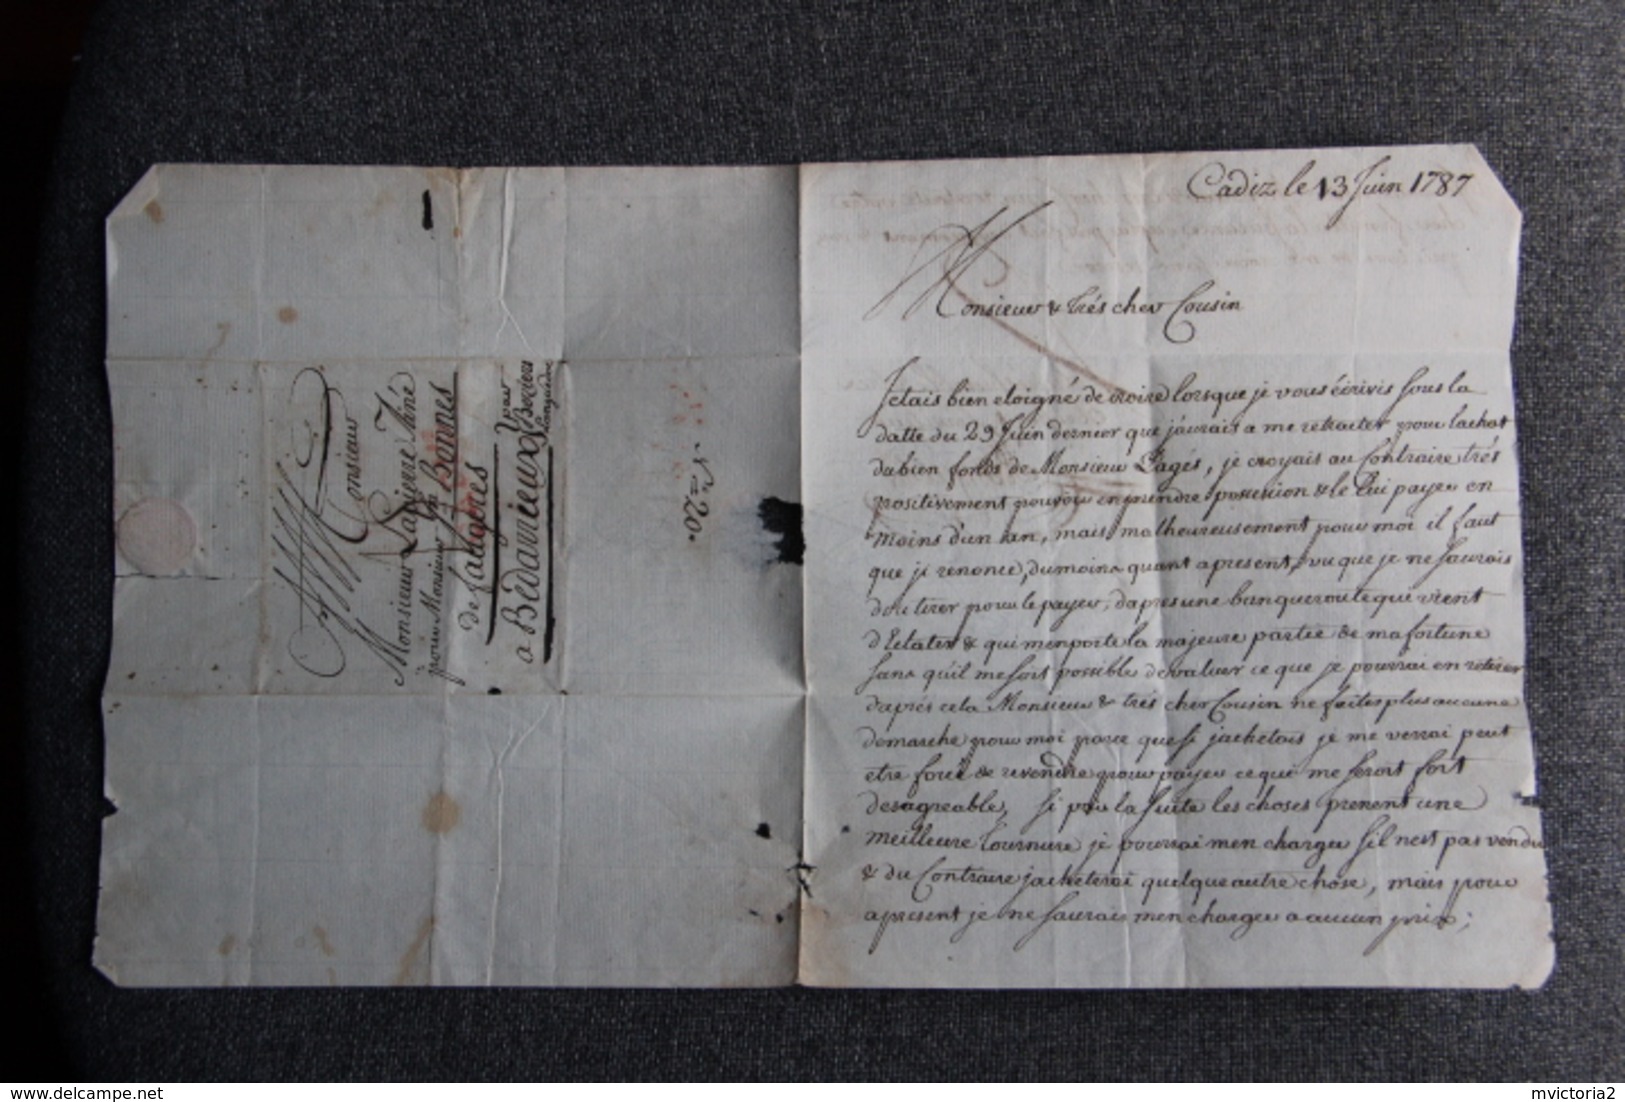 Monsieur
Monsieur Lapierre Ainé
pour Monsieur De Bonnes
de faugeres
a Bédarrieux
par Beziers
Languedoc
Nº 20.
Cadiz le 13 Juin 1787
Monsieur & trés cher Cousin
Jetais bien eloigné de croire lorsque je vous écrivis sous la
datte du 29 Juin dernier que j'aurais a me retracter pour lachat
dubien fonds de Monsieur Pagés, je croyais au Contraire trés
positivement pouvoir en prendre possession & le lui payer en
moins d'un an, mais malheureusement pour moi il faut
que j'i renonce, dumoins quant apresent, vu que je ne saurais
d'ou tirer pour le payer, dapres une banqueroute qui vient
d'Eclater & qui m'enporte la majeure partie de ma fortune
sans qu'il me soit possible devaluer ce que je pourrai en retirer
d'aprés cela Monsieur & trés cher Cousin ne faites plus aucune
demarche pour moi parce que si jachetais je me verrai peut
etre forcé de revendre pour payer ce qui me seroit fort
desagreable, si par la suite les choses prenent une
meilleure tournure je pourrai men charger sil n'est pas vendu
& du Contraire jacheterai quelque autre chose, mais pour
apresent je ne saurais men charger a aucun prix;
www.delcampe.net
mvictoria2